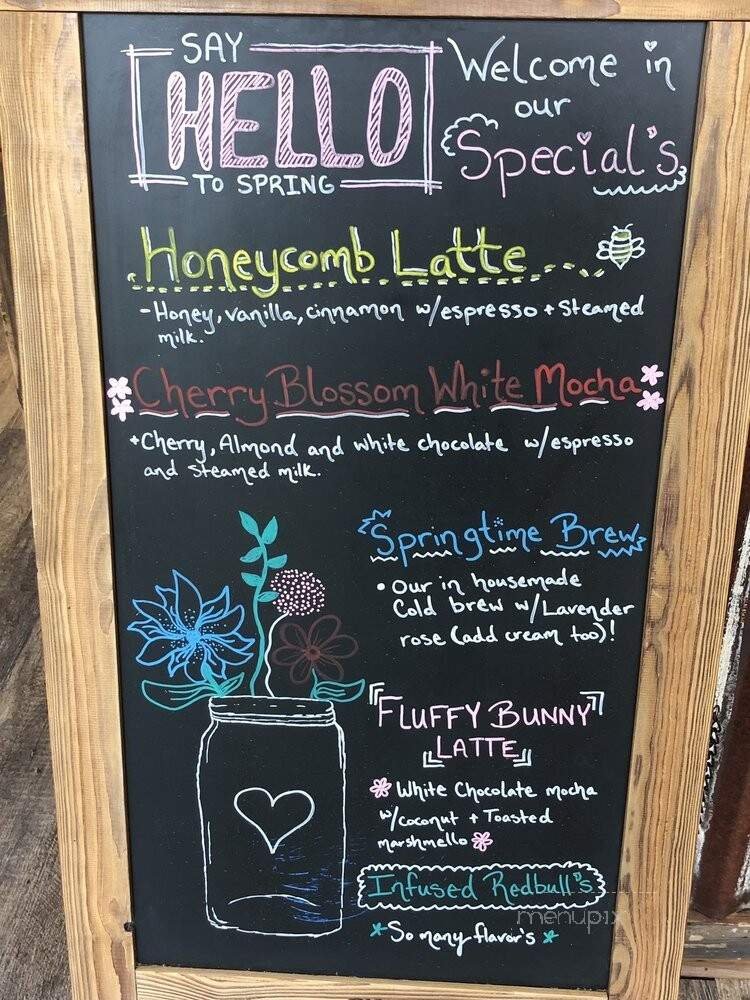 SAY
HELLO
TO SPRING
Welcome in
our
Special's
Honeycomb Latte
-Honey, vanilla, cinnamon w/espresso + Steamed
milk.
Cherry Blossom White Mocha
+Cherry, Almond and white chocolate w/espresso
and steamed milk.
Springtime Brew
• Our in housemade
Cold brew w/Lavender
rose (add cream too)!
FLUFFY BUNNY
LATTE
White Chocolate mocha
w/coconut + Toasted
marshmello
Infused Redbull's
So many flavor's
menupix